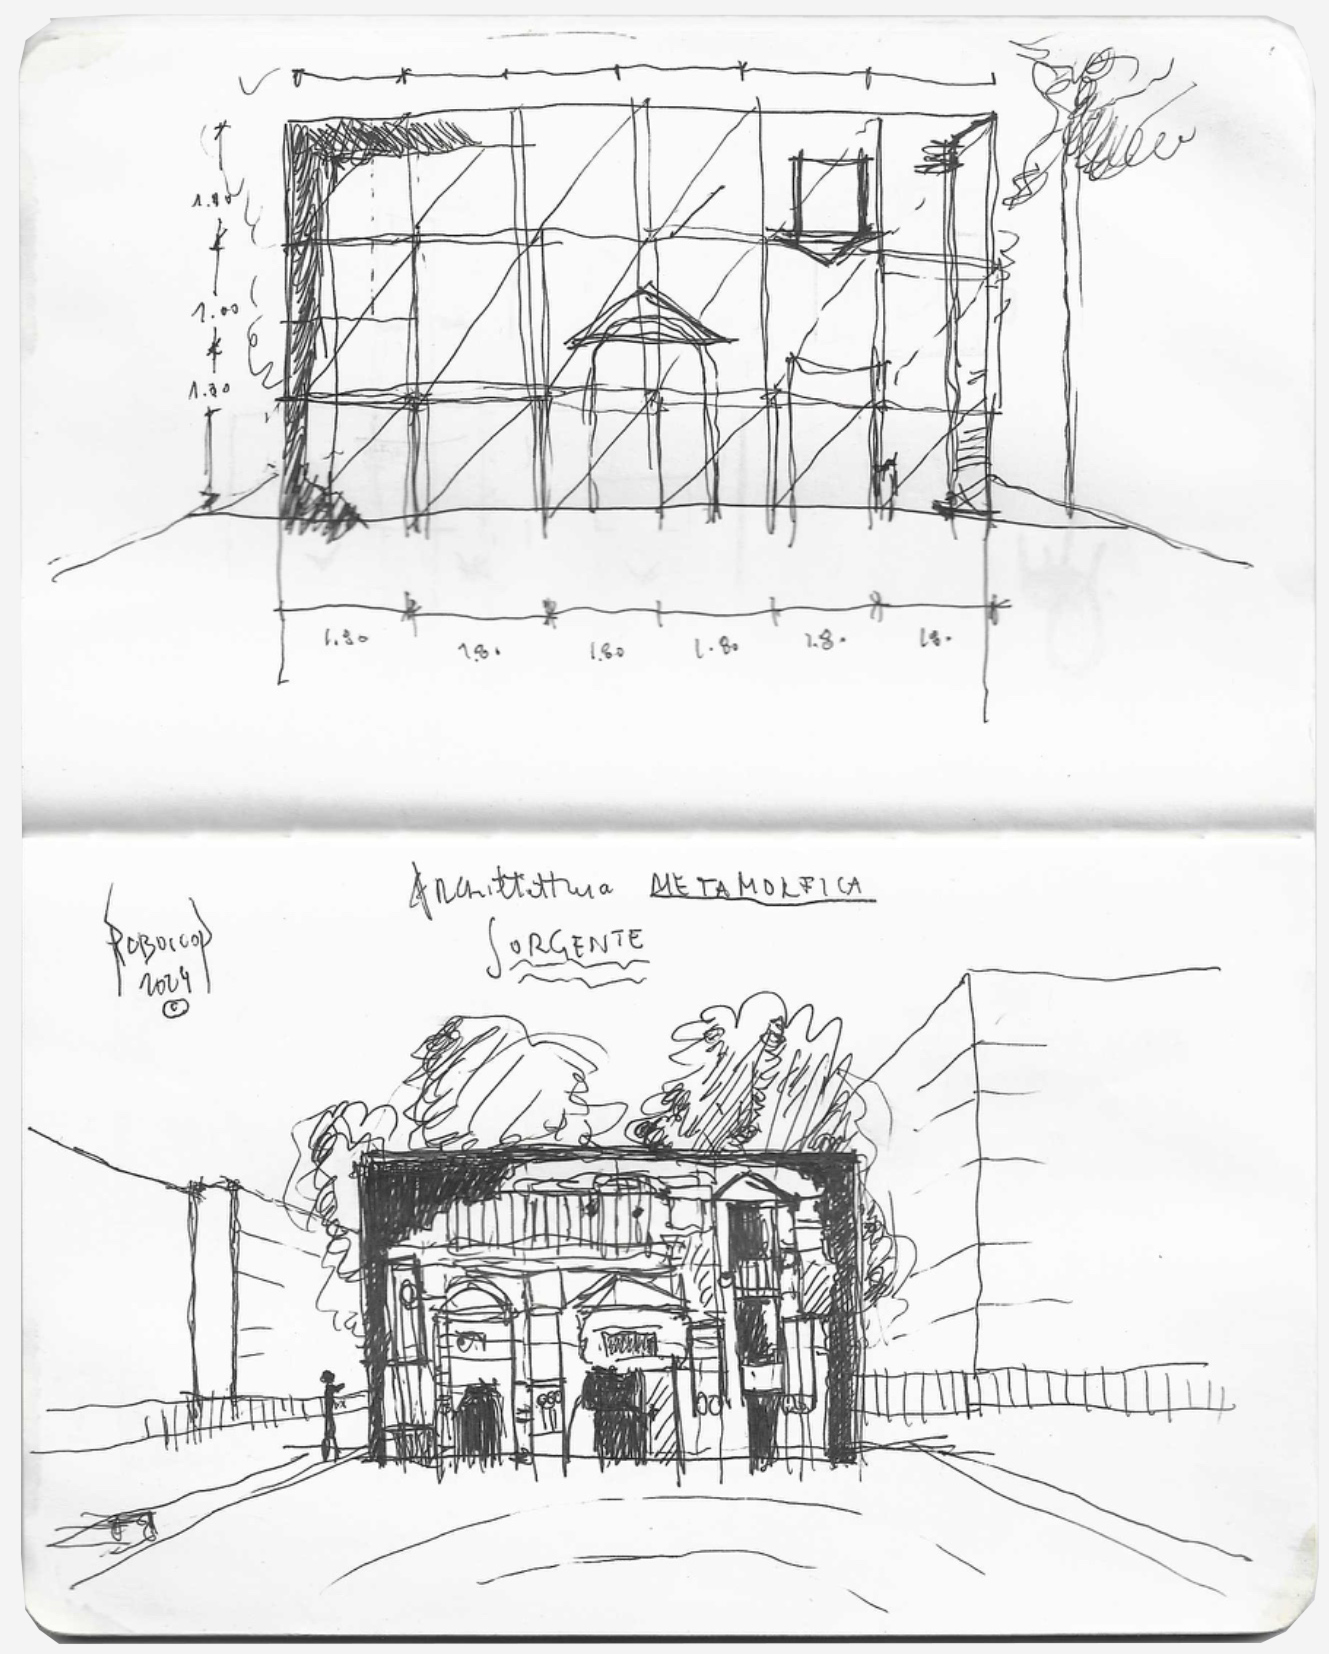 1.80
1.00
1.80
1.80
1.80
1.80
1.80
1.80
180
Architettura METAMORFICA
SORGENTE
2024
©